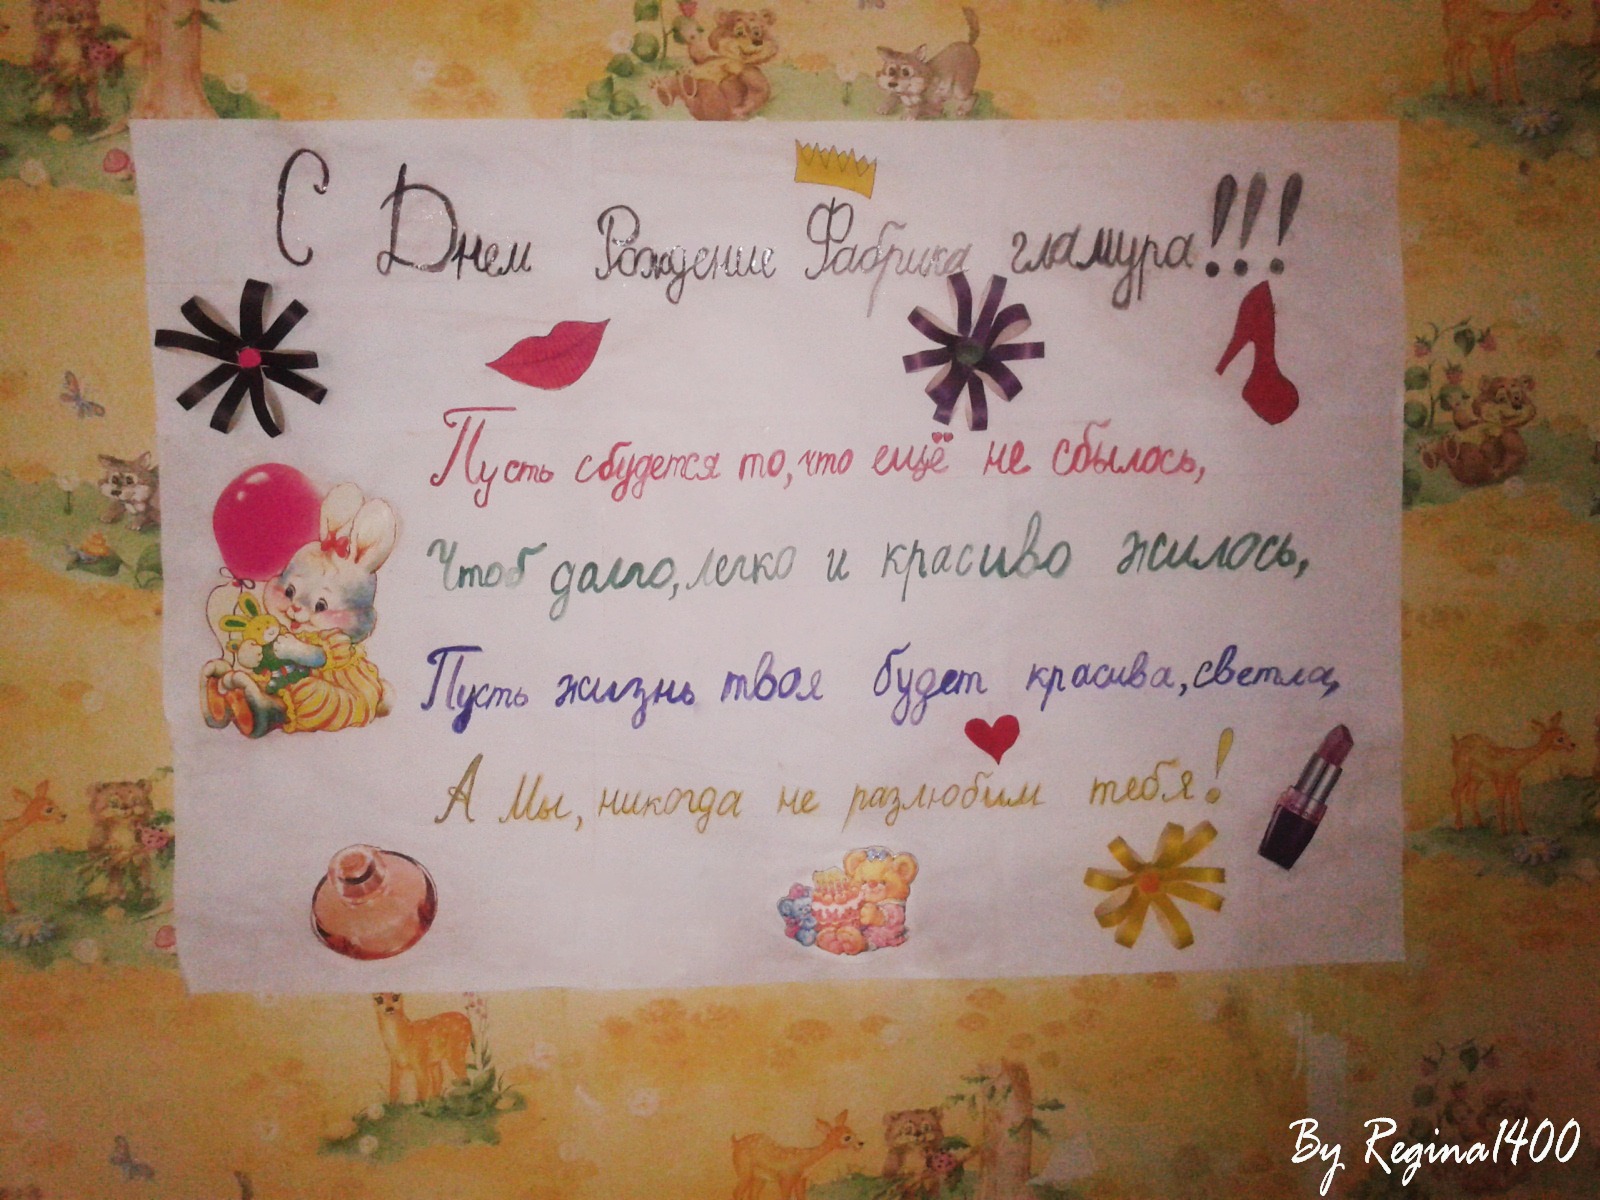 С Днем Рождение Фабрика гламура!!!
Пусть сбудется то, что ещё не сбылось,
Чтоб долго, легко и красиво жилось,
Пусть жизнь твоя будет красива, светла,
А Мы, никогда не разлюбим тебя!
By Regina1400